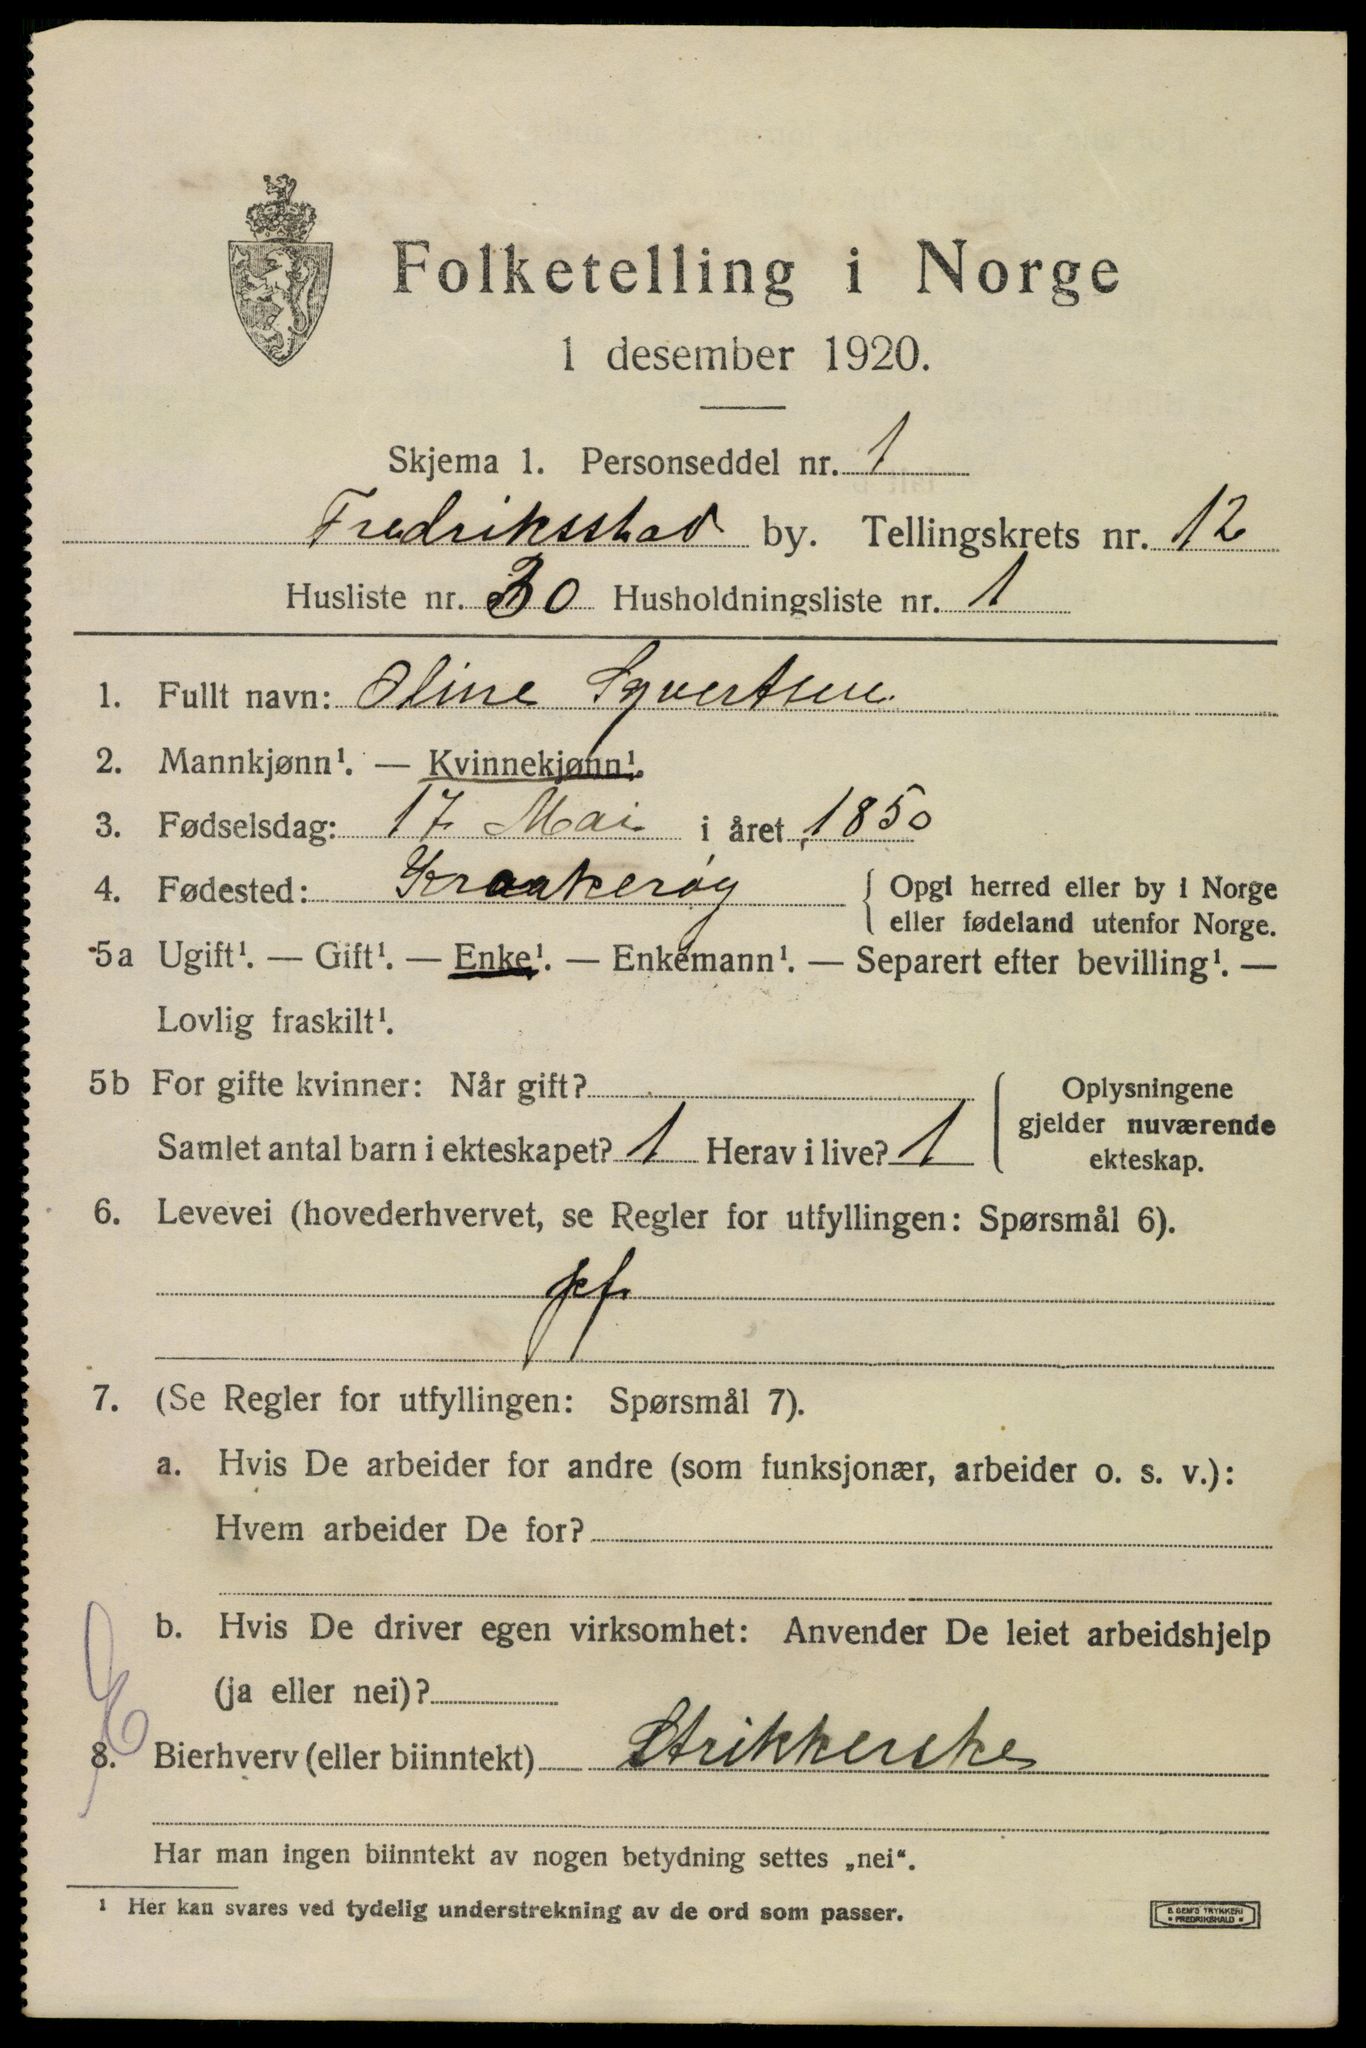 Folketelling i Norge
1 desember 1920.
Skjema 1. Personseddel nr. 1
Fredriksstad by. Tellingskrets nr. 12
Husliste nr. 30 Husholdningsliste nr. 1
1. Fullt navn: Oline Syvertsen
2. Mannkjønn¹. — Kvinnekjønn¹.
3. Fødselsdag: 17 Mai i året 1850
4. Fødested: Kraakerøy { Opgi herred eller by i Norge
eller fødeland utenfor Norge.
5a Ugift¹. — Gift¹. — Enke¹. — Enkemann¹. — Separert efter bevilling¹. —
Lovlig fraskilt¹.
5b For gifte kvinner: Når gift?
Samlet antal barn i ekteskapet? 1 Herav i live? 1
Oplysningene
gjelder nuværende
ekteskap.
6. Levevei (hovederhvervet, se Regler for utfyllingen: Spørsmål 6).
pf.
7. (Se Regler for utfyllingen: Spørsmål 7).
a. Hvis De arbeider for andre (som funksjonær, arbeider o. s. v.):
Hvem arbeider De for?
b. Hvis De driver egen virksomhet: Anvender De leiet arbeidshjelp
(ja eller nei)?
8. Bierhverv (eller biinntekt) Strikkerske
Har man ingen biinntekt av nogen betydning settes „nei“.
¹ Her kan svares ved tydelig understrekning av de ord som passer.
E. SEM'S TRYKKERI
* FREDRIKSHALD *